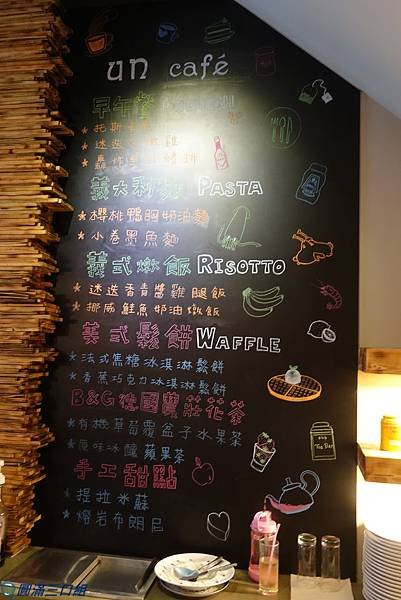 un café
早午餐
★ 義大利麵 PASTA
★ 櫻桃鴨胸奶油麵
★ 小卷墨魚麵
義式燉飯 RISOTTO
★ 迷迭香青醬雞腿飯
★ 挪威鮭魚奶油燉飯
美式鬆餅 WAFFLE
★ 法式焦糖冰淇淋鬆餅
★ 香蕉巧克力冰淇淋鬆餅
B&G德國農莊花茶
★ 有機草莓覆盆子水果茶
★ 原味冰釀蘋果茶
手工甜點
★ 提拉米蘇
★ 熔岩布朗尼
Tea Bar
圓滿三口組